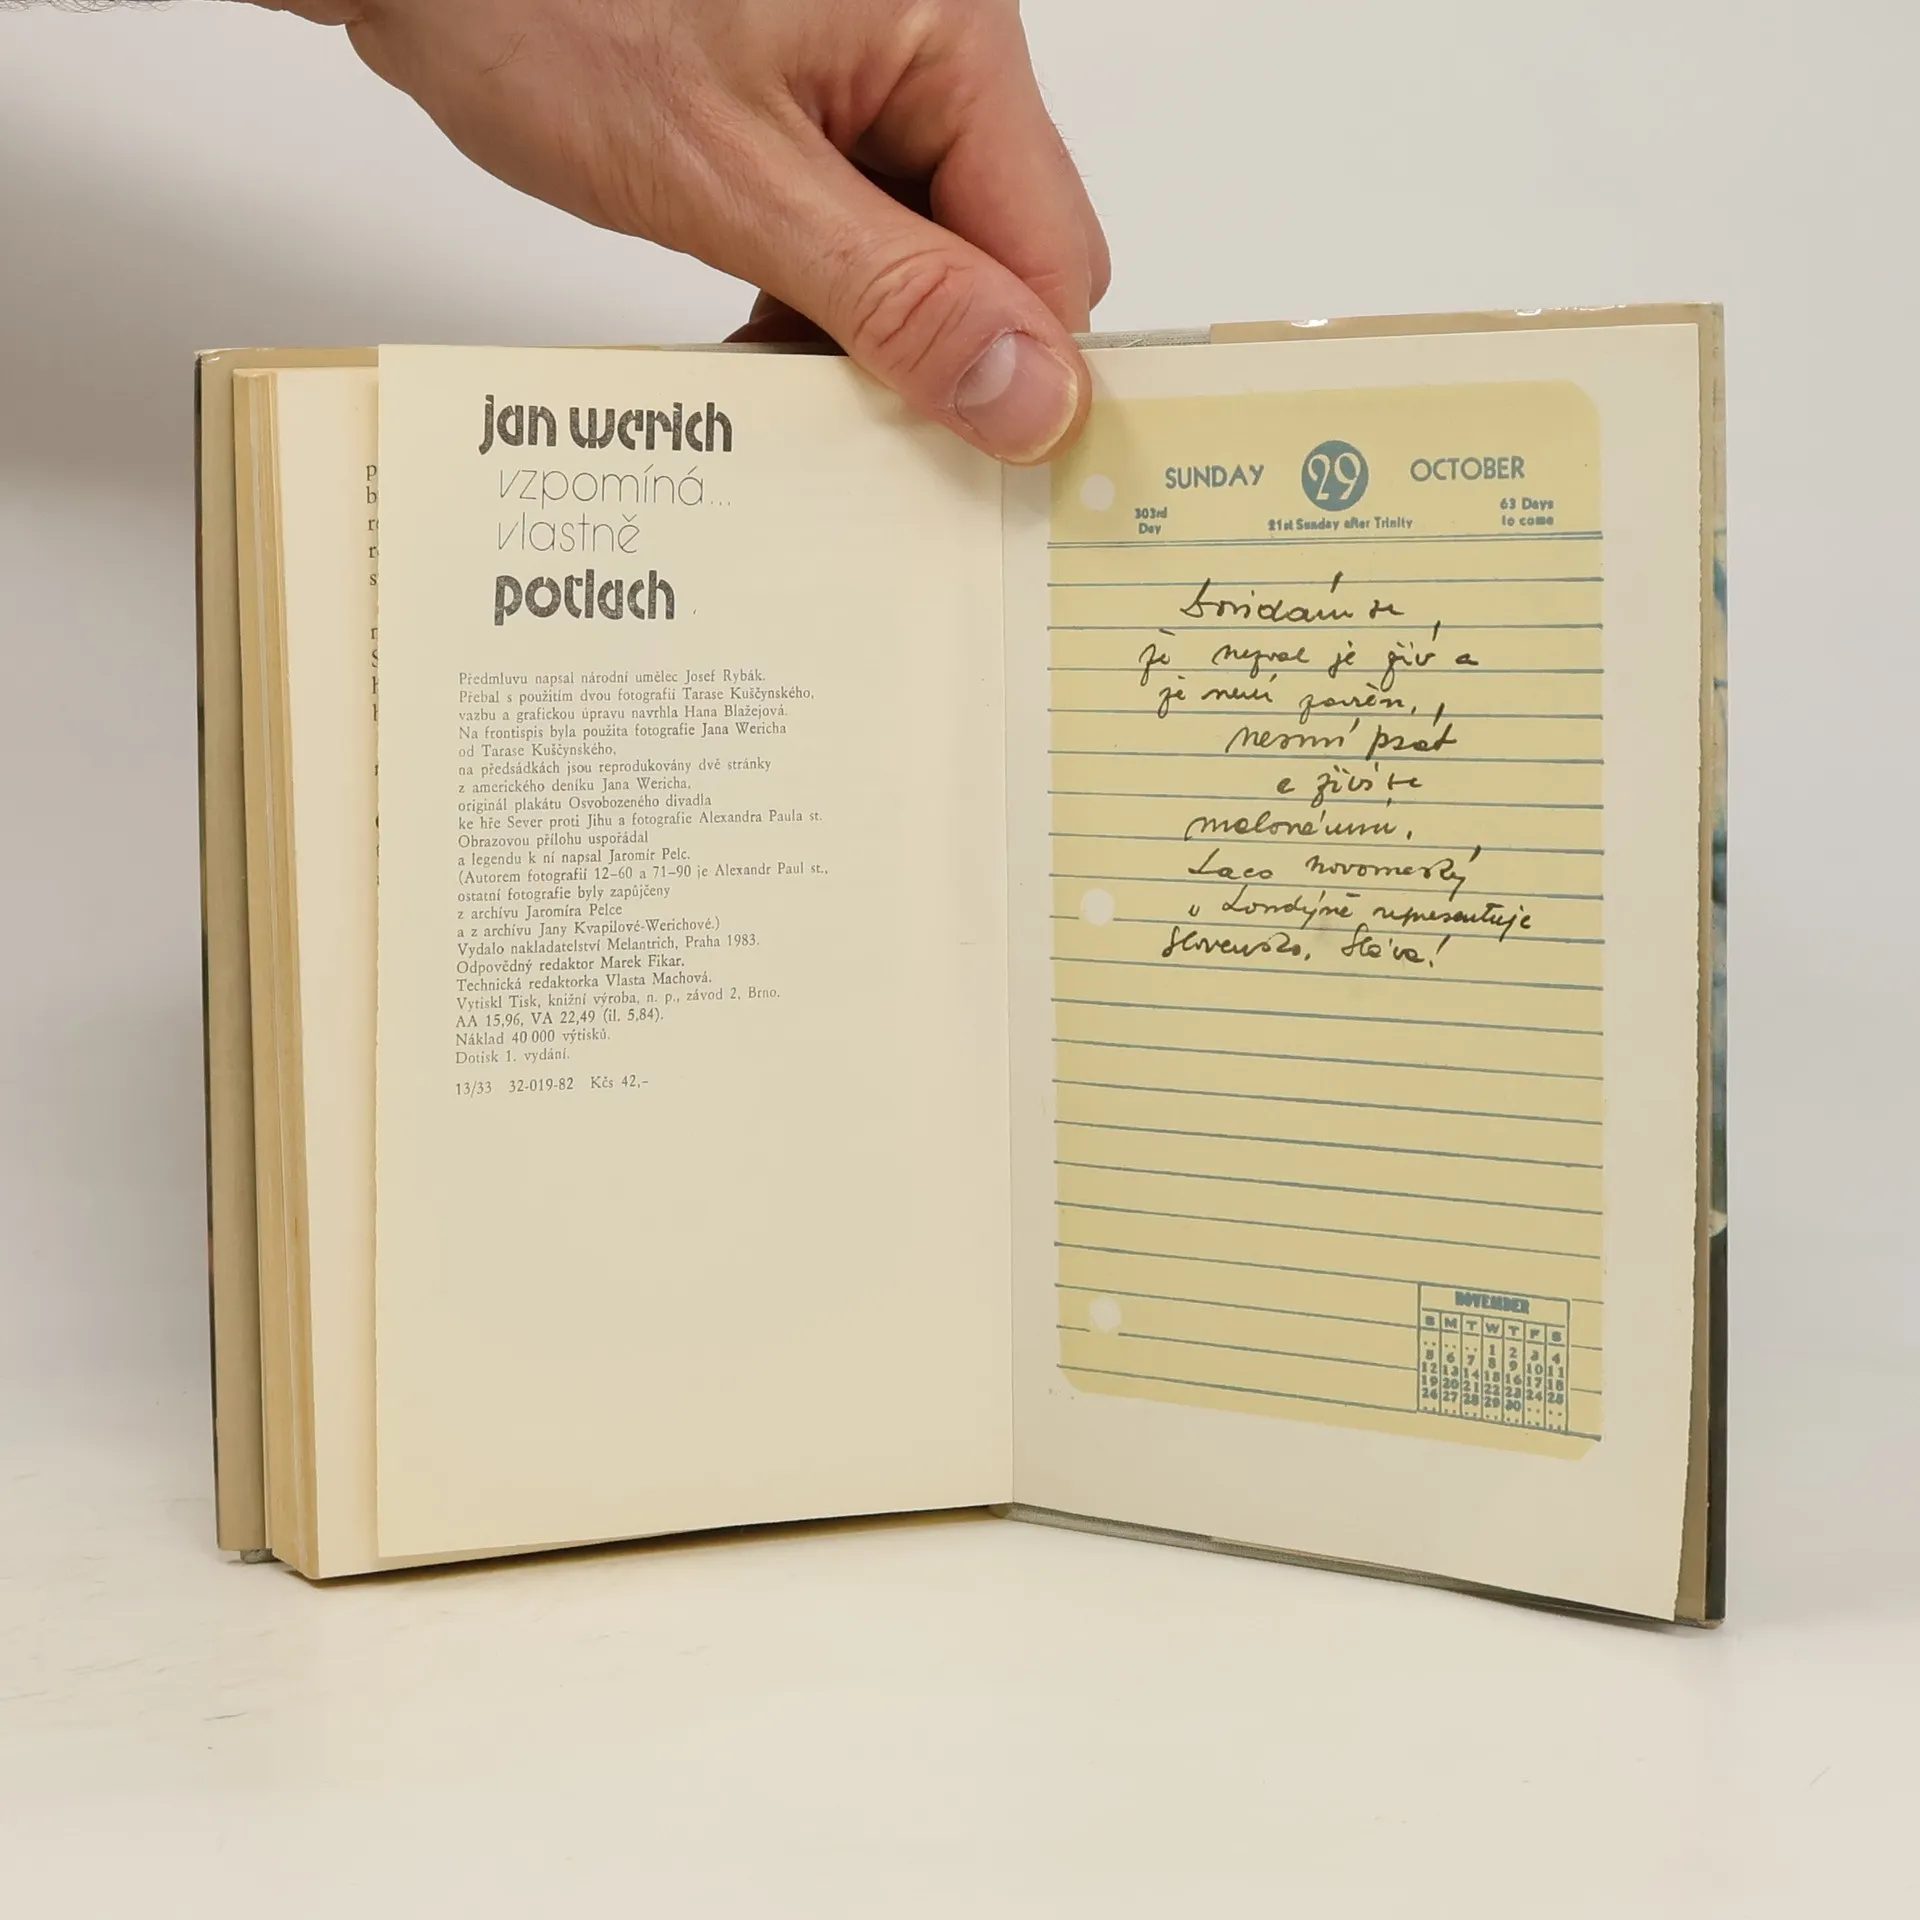 jan werich
vzpomíná...
vlastně
potlach
Předmluvu napsal národní umělec Josef Rybák.
Přebal s použitím dvou fotografií Tarase Kuščynského,
vazbu a grafickou úpravu navrhla Hana Blažejová.
Na frontispis byla použita fotografie Jana Wericha
od Tarase Kuščynského,
na předsádkách jsou reprodukovány dvě stránky
z amerického deníku Jana Wericha,
originál plakátu Osvobozeného divadla
ke hře Sever proti Jihu a fotografie Alexandra Paula st.
Obrazovou přílohu uspořádal
a legendu k ní napsal Jaromír Pelc.
(Autorem fotografií 12–60 a 71–90 je Alexandr Paul st.,
ostatní fotografie byly zapůjčeny
z archívu Jaromíra Pelce
a z archívu Jany Kvapilové-Werichové.)
Vydalo nakladatelství Melantrich, Praha 1983.
Odpovědný redaktor Marek Fikar.
Technická redaktorka Vlasta Machová.
Vytiskl Tisk, knižní výroba, n. p., závod 2, Brno.
AA 15,96, VA 22,49 (il. 5,84).
Náklad 40 000 výtisků.
Dotisk 1. vydání.
13/33 32-019-82 Kčs 42,–
SUNDAY 29 OCTOBER
303rd Day 21st Sunday after Trinity 63 Days to come
se
že nezval je živ a
že není zavřen,
nesmí psát
a živí se
Laco novomeský
v Londýně representuje
Slovensko. Sláva!
NOVEMBER
S M T W T F S
.. .. .. 1 2 3 4
5 6 7 8 9 10 11
12 13 14 15 16 17 18
19 20 21 22 23 24 25
26 27 28 29 30 .. ..